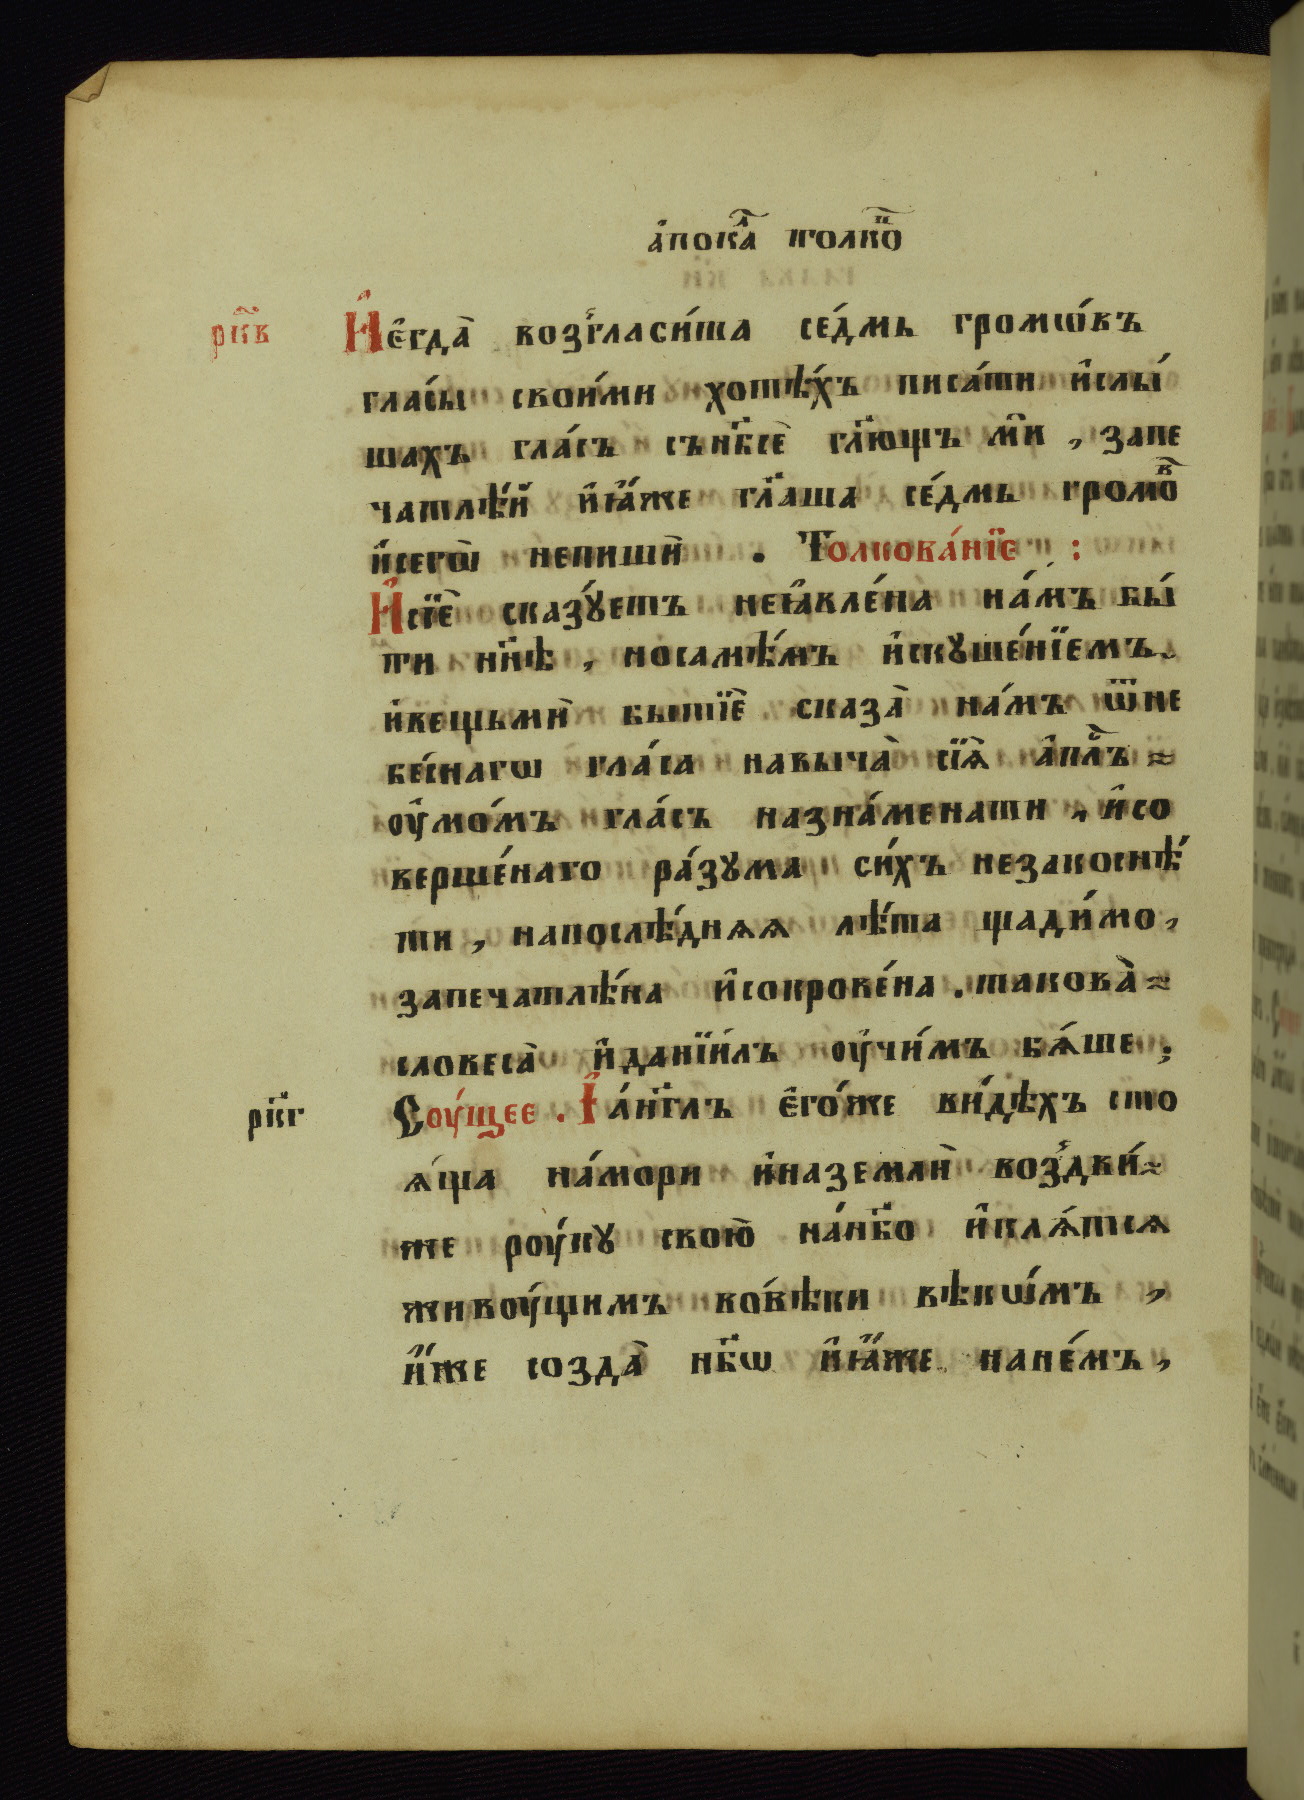 а҆пока́л толко́в
рк҃в И҆є҆гда̀ возгласи́ша се́дмь громѡ́въ
гла́сы свои́ми хотѣ́хъ писа́ти и҆слы́
шахъ гла́съ сън҃бсѐ гл҃ющъ мѝ , запе
чатлѣ́й и҆ꙗ҆́же гл҃аша се́дмь громо́в
и҆сегѡ̀ непишѝ . Толкова́нїе :
И҆сїѐ сказꙋ́етъ неꙗ҆вле́на на́мъ бы́
ти нн҃ѣ , носамѣ́мъ и҆скꙋше́нїемъ .
и҆вещьмѝ бытїѐ сказа̀ на́мъ ѿне
бе́снагѡ гла́са навыча̀ сїѧ̀ а҆пл҃ъ ≈
оу҆мо́мъ гла́съ назна́менати , и҆со
верше́наго ра́зꙋма си́хъ незакоснѣ́
ти , напослѣ́днѧѧ лѣ́та щади́мо ,
запечатлѣ́на и҆сокрове́на . такова̀ ≈
словеса̀ и҆данїи́лъ оу҆чи́мъ бѧ́ше .
рк҃г Соу́щее . І҆а́нг҃лъ є҆го́же ви́дѣхъ сто
ѧ́ща на́мори и҆наземлѝ воздви́ ≈
же роу́кꙋ свою̀ на́нб҃о и҆клѧ́тсѧ
живоу́щимъ вовѣ́ки вѣкѡ́мъ ,
и҆́же созда̀ нб҃ѡ и҆ꙗ҆́же нане́мъ ,